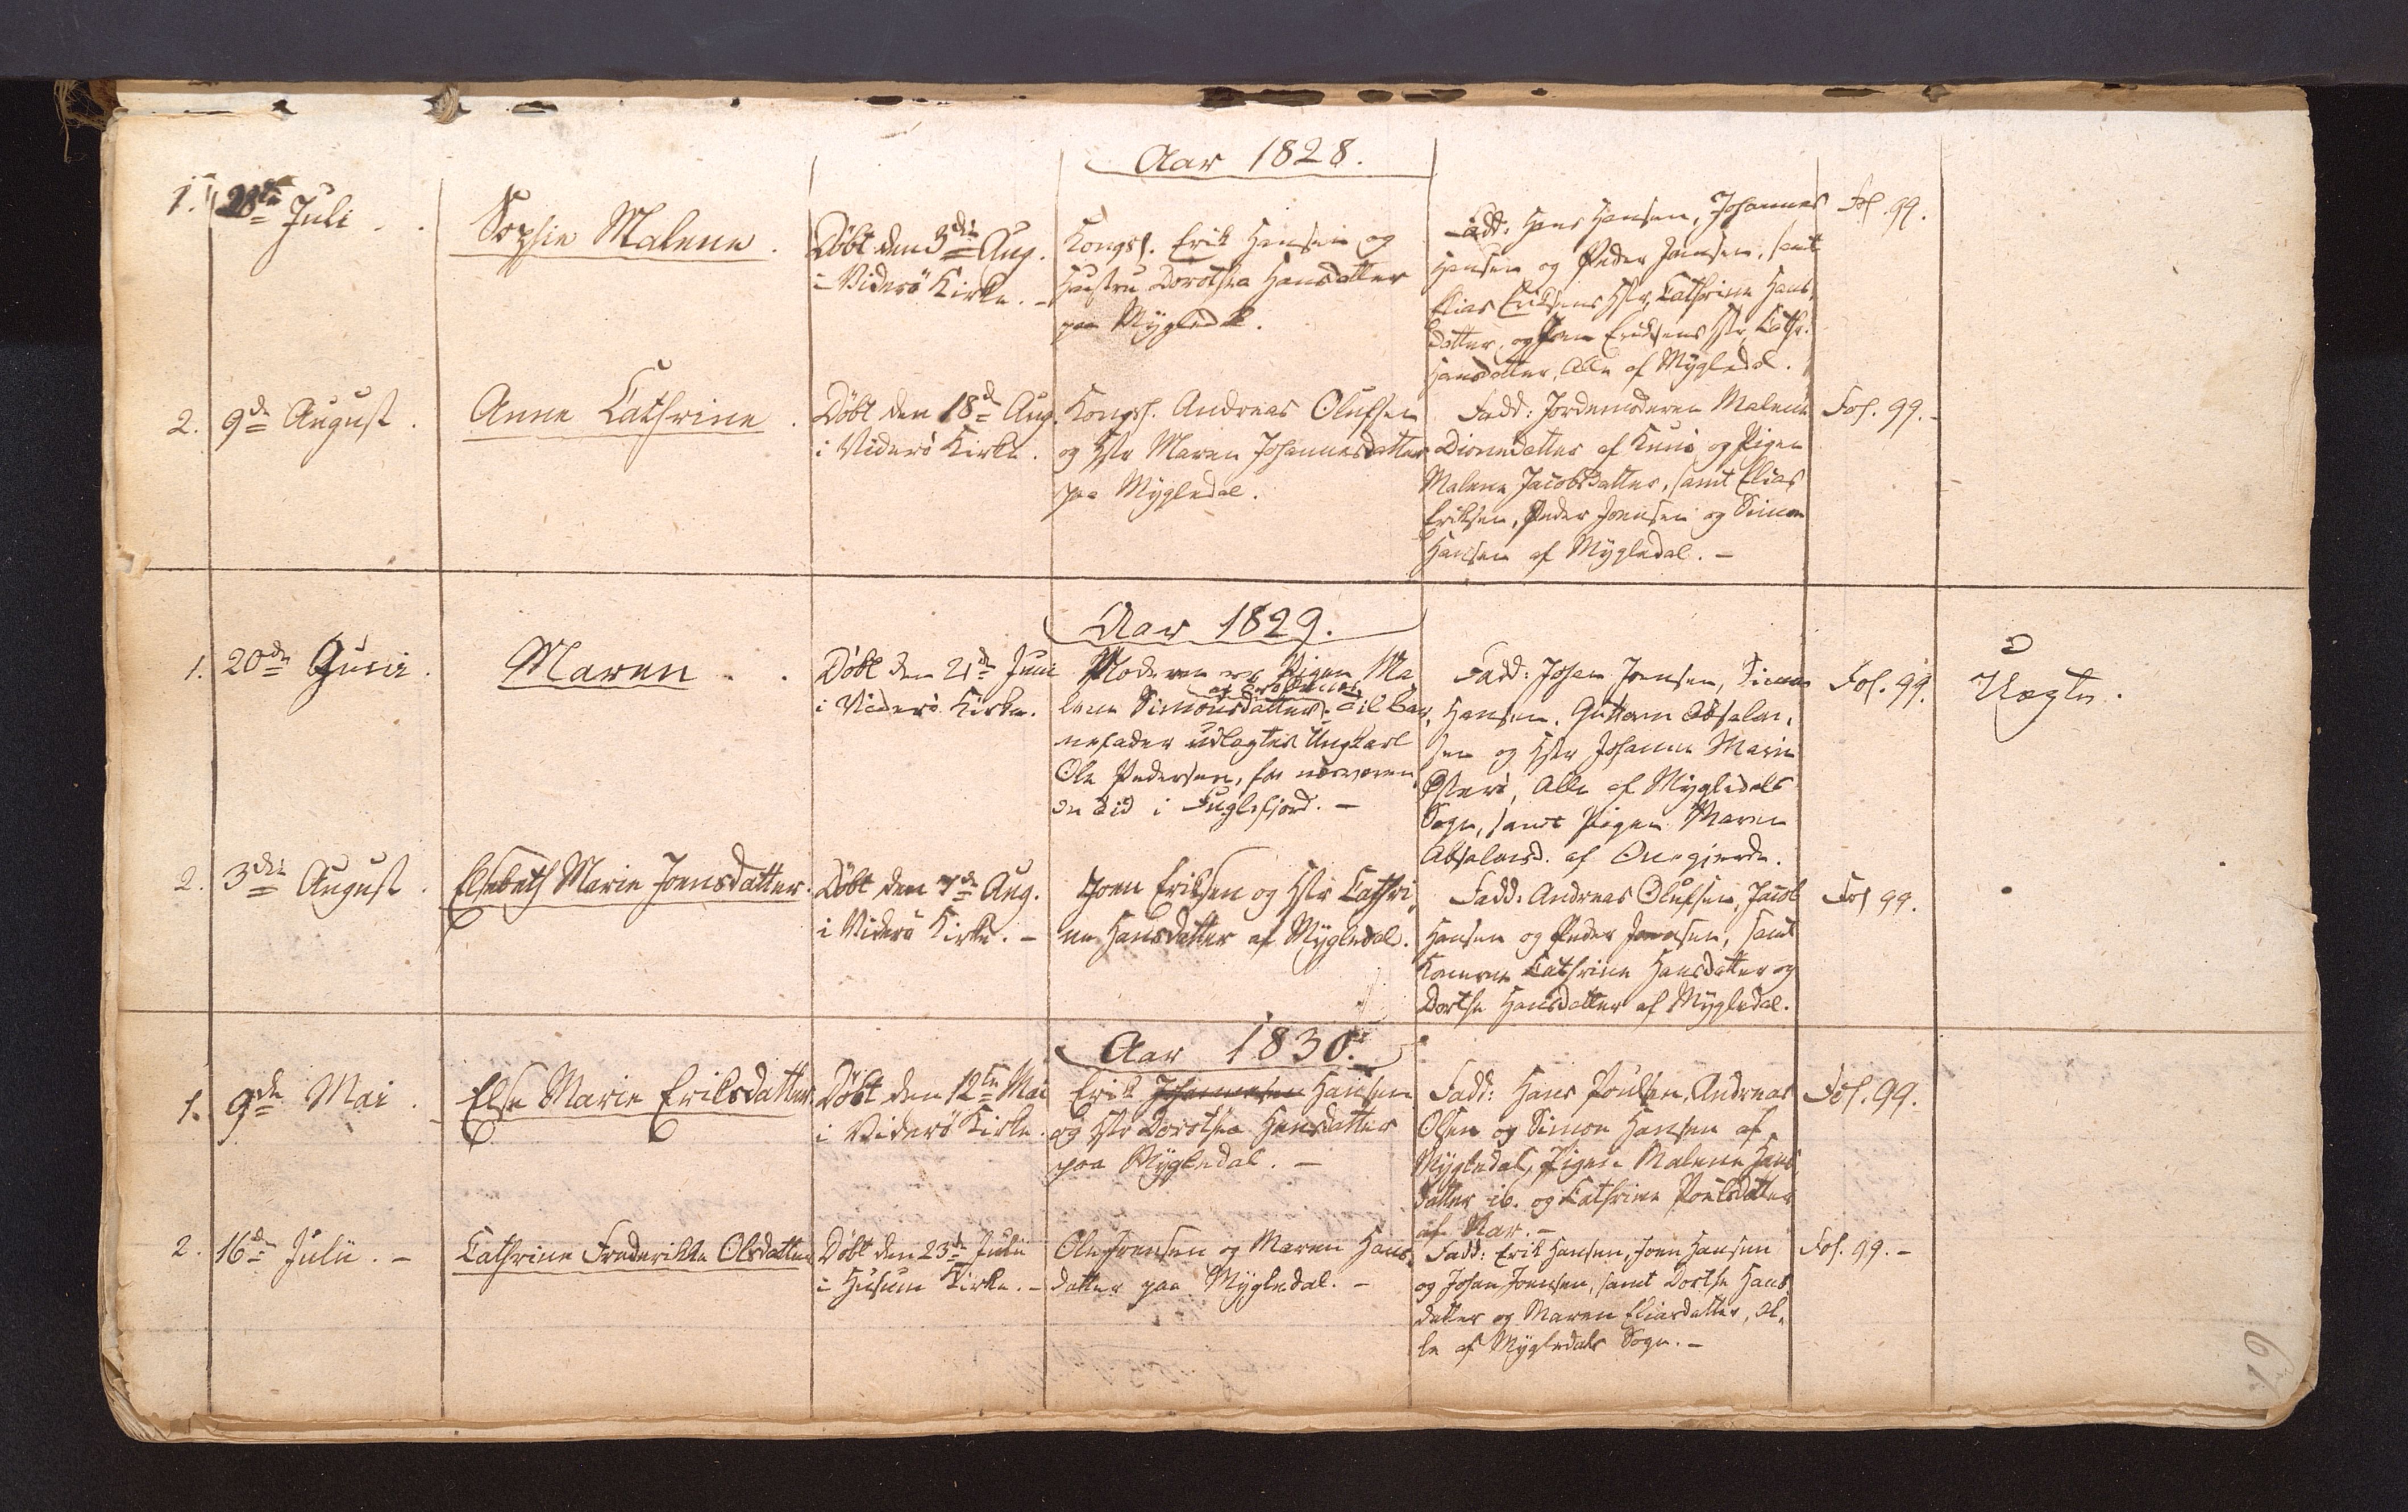 Aar 1828.
1. 28de Juli . .
Sophie Malene .
Döbt den 3die Aug.
i Viderö Kirke. -
Kongsf. Erik Hansen og
Hustru Dorothea Hansdatter
paa Mygledal.
Fadd: Hans Hansen, Johannes
Hansen og Peder Joensen, samt
Elias Eriksens Hstr Cathrine Hans-
datter, og Joen Eriksens Hstr Cathr.
Hansdatter, Alle af Mygledal.
Fol. 99.
2. 9de August .
Anne Cathrine .
Döbt den 18de Aug.
i Viderö Kirke.
Kongsf. Andreas Olufsen
og Hstr Maren Johannesdatter
paa Mygledal.
Fadd: Jordemoderen Malene
Dismedatter af Kunö og Pigen
Malene Jacobsdatter, samt Elias
Eriksen, Peder Joensen og Simon
Hansen af Mygledal. -
Fol. 99. -
Aar 1829.
1. 20de Junii .
Maren . .
Döbt den 21de Juni
i Viderö Kirke.
Moderen er Pigen Ma
lene Simonsdatter. Til Bar,
nefader udlagtes Ungkarl
Ole Pedersen, for nærværen
de Tid i Fuglefjord. -
Fadd: Johan Joensen, Simon
Hansen, Guttorm Absalon,
sen og Hstr Johanne Marie
Österö, Alle af Mygledals
Sogn, samt Pigen Maren
Absalonsd. af Onegjerde.
Fol. 99.
Uægte.
2. 3die August .
Elsebeth Marie Joensdatter.
Döbt den 7de Aug.
i Viderö Kirke. -
Joen Eriksen og Hstr Cathri,
ne Hansdatter af Mygledal.
Fadd: Andreas Olufsen, Jacob
Hansen og Peder Joensen, samt
Konerne Cathrine Hansdatter og
Dorthe Hansdatter af Mygledal.
Fol 99.
Aar 1830.
1. 9de Mai .
Else Marie Eriksdatter
Döbt den 12te Mai
i Viderö Kirke.
Erik Johannesen Hansen
og Hstr Dorothea Hansdatter
paa Mygledal. -
Fadd: Hans Poulsen, Andreas
Olsen og Simon Hansen af
Mygledal, Pigen Malene Hans
datter ib. og Cathrine Poulsdatter
af Nar. -
Fol. 99.
2. 16de Julii. -
Cathrine Frederikka Olsdatter
Döbt den 23de Julii
i Husum Kirke. -
Ole Joensen og Maren Hans,
datter paa Mygledal. -
Fadd: Erik Hansen, Joen Hansen
og Johan Joensen, samt Dorthe Hans
datter og Maren Eliasdatter, Al,
le af Mygledals Sogn. -
Fol. 99. -
19